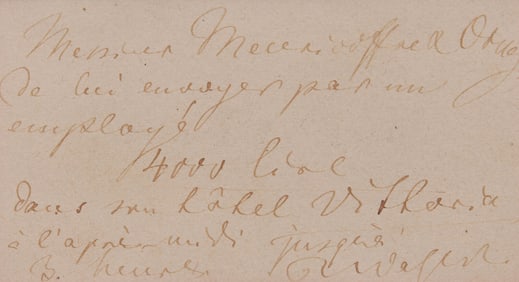 Messieurs Meuricoffre &
de lui envoyer par un
employé
4000 lire
dans son hôtel Vittoria
à l'après-midi jusqu'à
3. heures. R Wagner